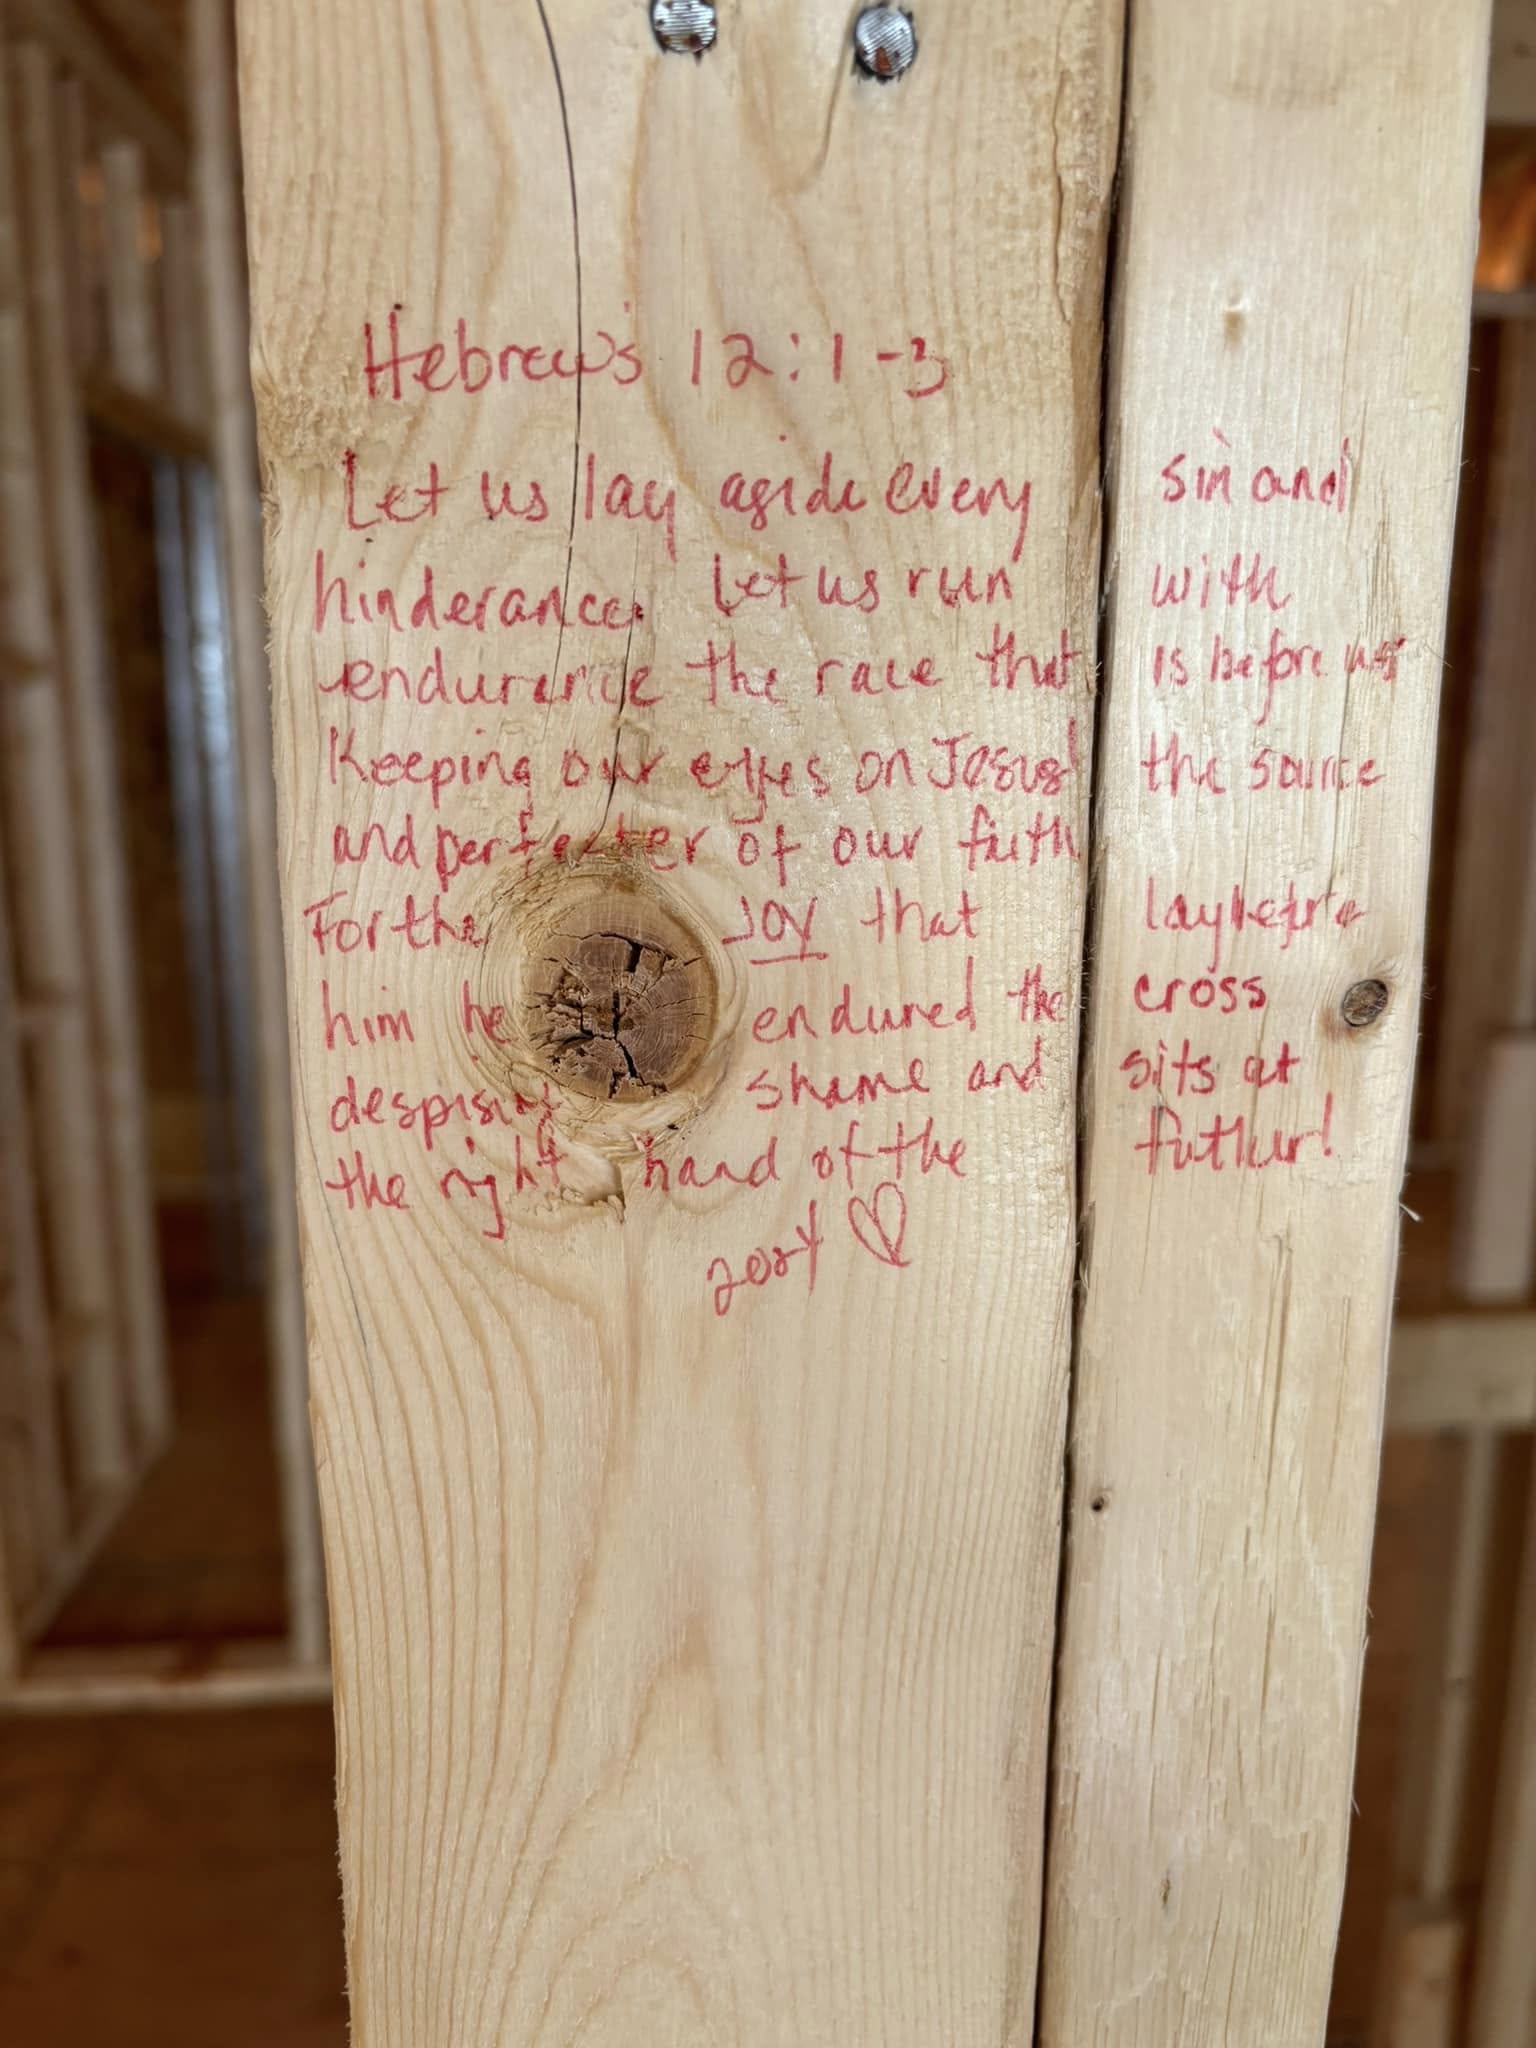 Hebrews 12:1-3
Let us lay aside every sin and
hinderance let us run with
endurance the race that is before us
Keeping our eyes on Jesus! the source
and perfecter of our faith
For the Joy that lay before
him he endured the cross
despising shame and sits at
the right hand of the father!